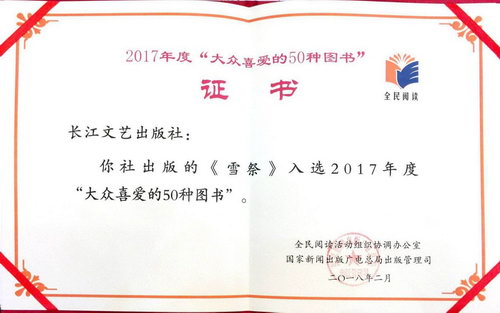 2017年度“大众喜爱的50种图书”
证书
全民阅读
长江文艺出版社：
你社出版的《雪祭》入选2017年度
“大众喜爱的50种图书”。
全民阅读活动组织协调办公室
国家新闻出版广电总局出版管理司
二〇一八年二月